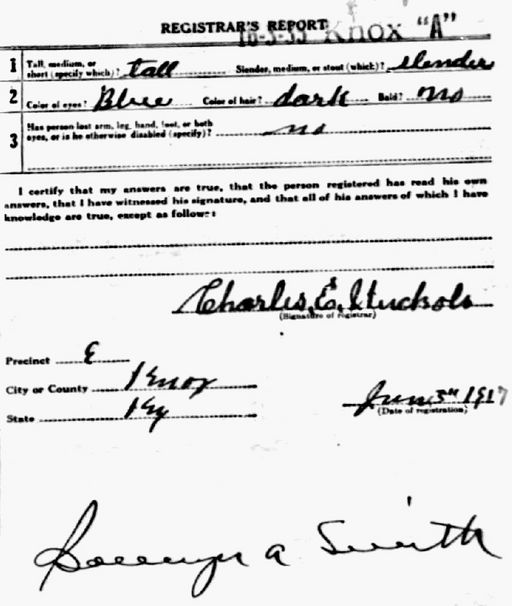 REGISTRAR'S REPORT
16-3-33 Knox "A"
1 Tall, medium, or short (specify which)? tall Slender, medium, or stout (which)? slender
2 Color of eyes? Blue Color of hair? dark Bald? no
3 Has person lost arm, leg, hand, foot, or both eyes, or is he otherwise disabled (specify)? no
I certify that my answers are true, that the person registered has read his own
answers, that I have witnessed his signature, and that all of his answers of which I have
knowledge are true, except as follows:
Charles E.
(Signature of registrar)
Precinct E
City or County Knox
State Ky
June 5th 1917
(Date of registration)
A Smith